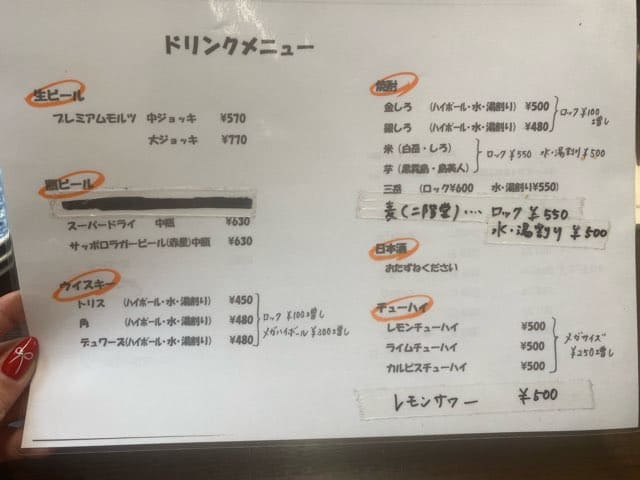 ドリンクメニュー
生ビール
プレミアムモルツ 中ジョッキ ¥570
大ジョッキ ¥770
瓶ビール
スーパードライ 中瓶 ¥630
サッポロラガービール(赤星)中瓶 ¥630
ウイスキー
トリス (ハイボール・水・湯割り) ¥450
角 (ハイボール・水・湯割り) ¥480
デュワーズ(ハイボール・水・湯割り) ¥480
ロック ¥100増し
メガハイボール ¥300増し
焼酎
金しろ (ハイボール・水・湯割り) ¥500
銀しろ (ハイボール・水・湯割り) ¥480
ロック ¥100増し
米 (白岳・しろ)
芋 (黒霧島・島美人)
ロック ¥550 水・湯割り ¥500
三岳 (ロック¥600 水・湯割り¥550)
麦(二階堂)… ロック ¥550
水・湯割り ¥500
日本酒
おたずねください
チューハイ
レモンチューハイ ¥500
ライムチューハイ ¥500
カルピスチューハイ ¥500
メガサイズ
¥250増し
レモンサワー ¥500